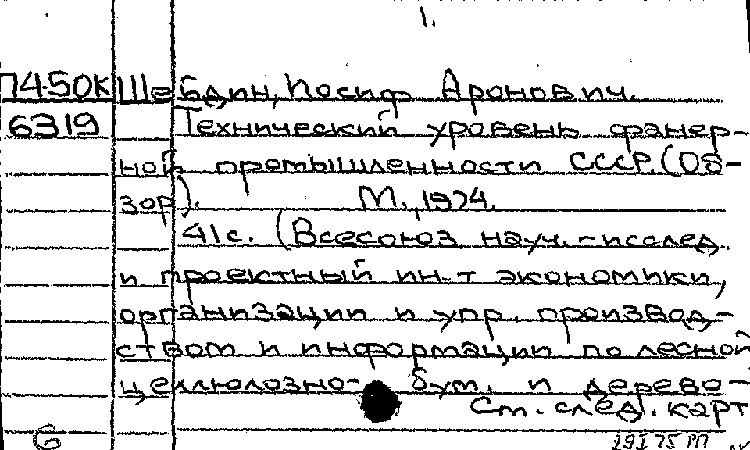 1.
П4-50К Шебдин, Иосиф Аронович.
6319 Технический уровень фанер-
ной промышленности СССР. (Об-
зор). М., 1974.
41с. (Всесоюз науч.-исслед
и проектный ин-т экономики,
организации и упр. производ-
ством и информации по лесной
целлюлозно- бум. и дерево-
См. след. карт
6